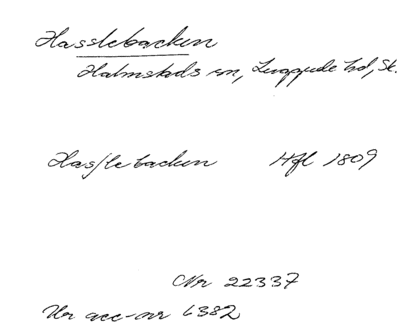 Hasslebacken
Halmstads sn, Luggude hd, Sk.
Hasslebacken Hfl 1809
Nr 22337
Ur acc-nr 6382